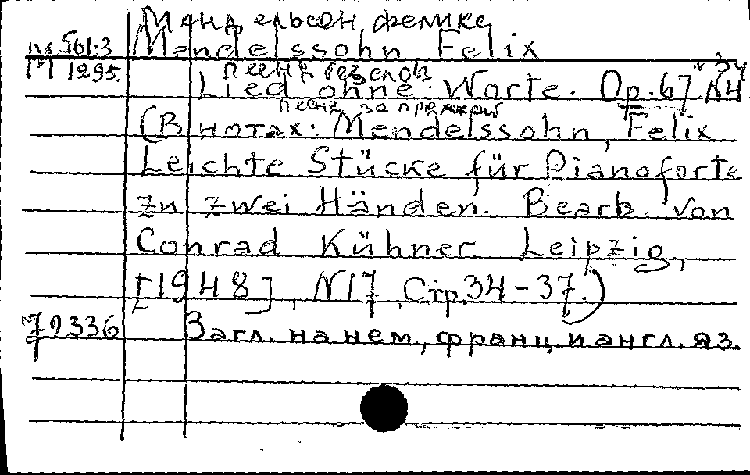 Мендельсон, Феликс
М.561:3 Mendelssohn Felix
М 1295. Песня без слов 34
Lied ohne Worte. Op. 67 N4
песня за пряжкой
(В нотах: Mendelssohn, Felix
Leichte Stücke für Pianoforte
zu zwei Händen. Bearb. von
Conrad Kühner. Leipzig,
[1948], N17, Стр. 34-37.)
79336 Загл. на нем., франц. и англ. яз.